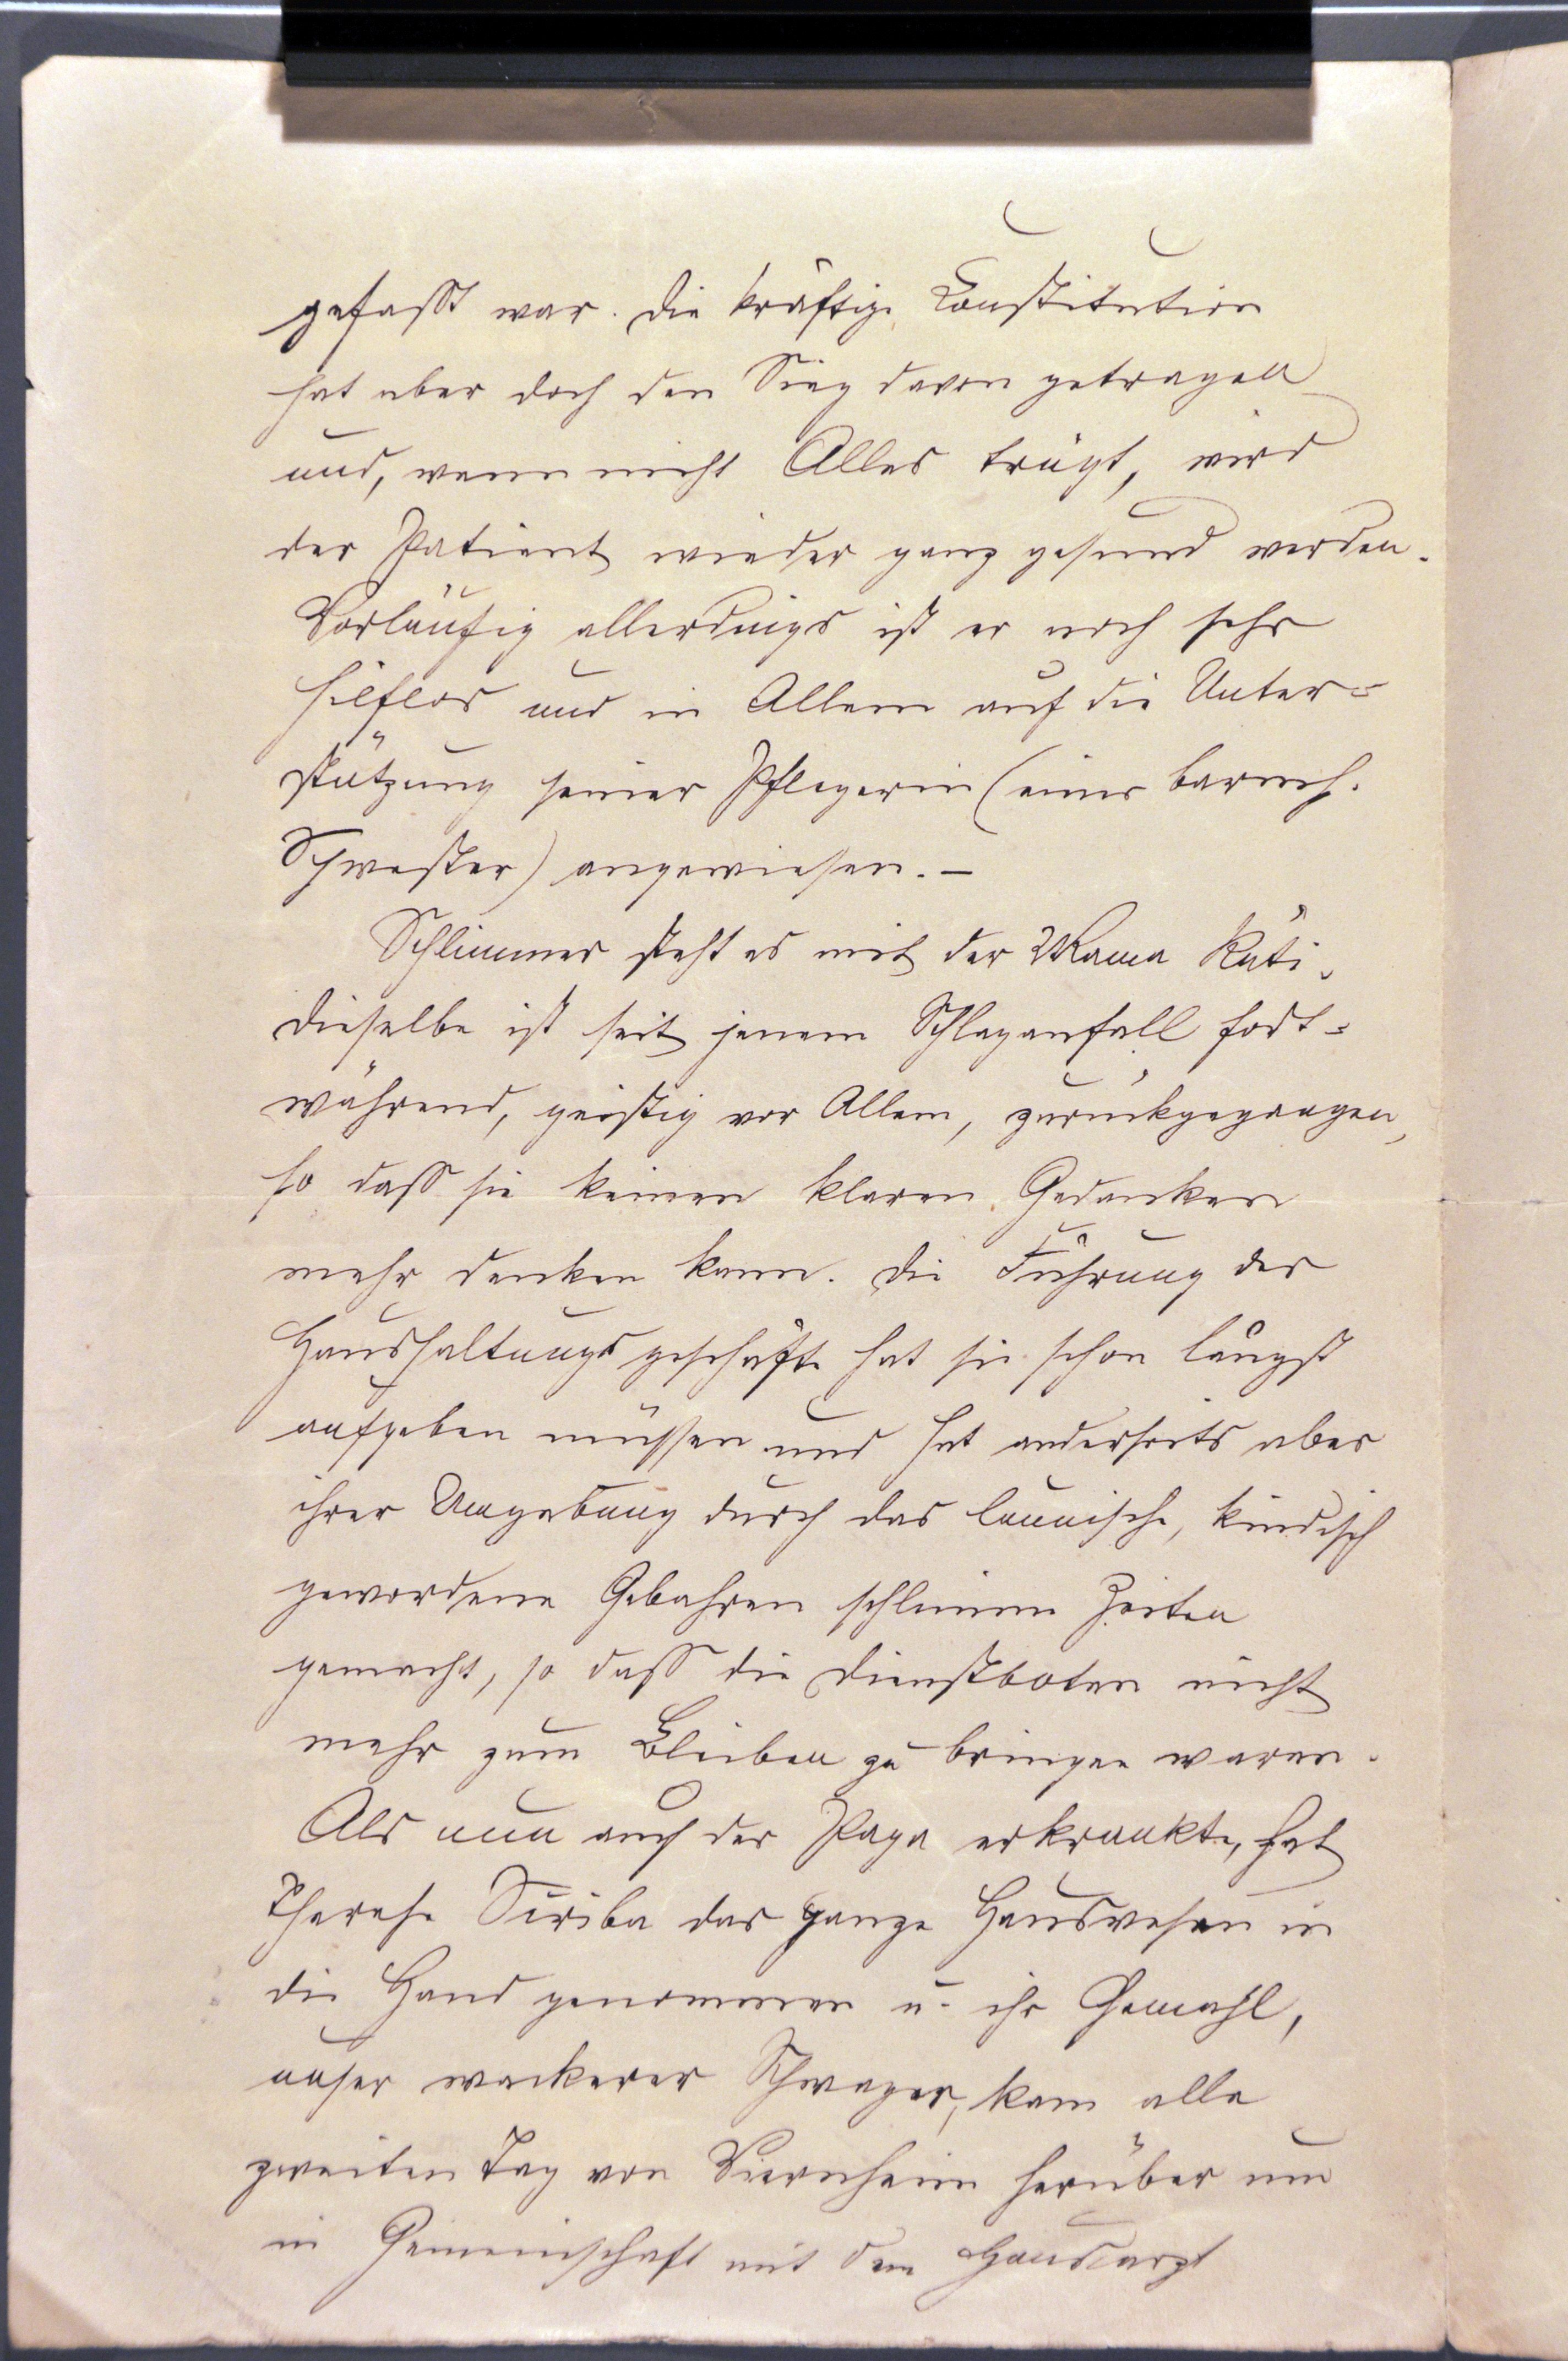 gefaßt war. Die kräftige Constitution
hat aber doch den Sieg davon getragen
und, wenn nicht Alles trügt, wird
der Patient wieder ganz gesund werden.
Vorläufig allerdings ist er noch sehr
hilflos und in Allem auf die Unter=
stützung seiner Pflegerin (einer barmh.
Schwester) angewiesen. –
Schlimmer steht es mit der Mama Käti.
Dieselbe ist seit jenem Schlaganfall fort=
während, geistig vor Allem, zurückgegangen,
so daß sie keinen klaren Gedanken
mehr denken kann. Die Führung der
Haushaltungsgeschäfte hat sie schon längst
aufgeben müssen und hat anderseits aber
ihrer Umgebung durch das launische, kindisch
gewordene Gebahren schlimme Zeiten
gemacht, so daß die Dienstboten nicht
mehr zum Bleiben zu bringen waren.
Als nun auch der Papa erkrankte, hat
Therese Scriba das ganze Hauswesen in
die Hand genommen u. ihr Gemahl,
unser wackerer Schwager, kam alle
zweiten Tag von Viernheim herüber um
in Gemeinschaft mit dem Hausarzt